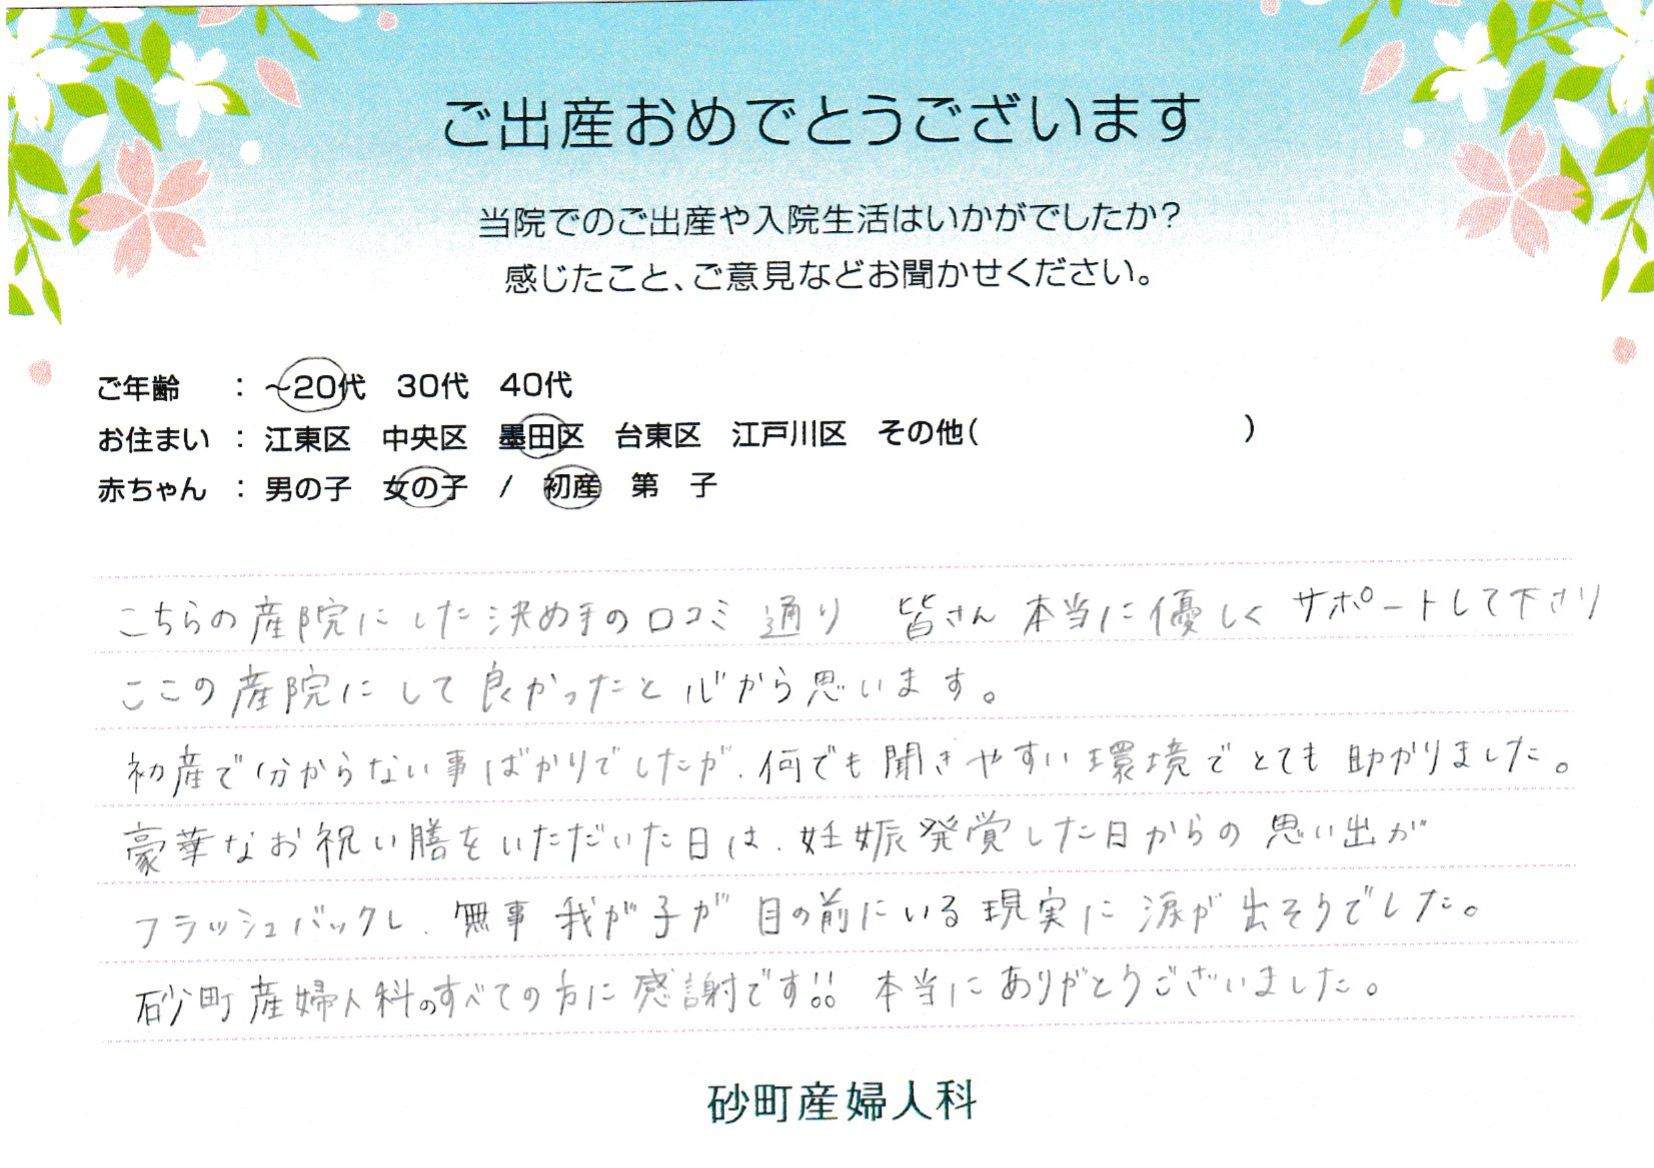 ご出産おめでとうございます
当院でのご出産や入院生活はいかがでしたか?
感じたこと、ご意見などお聞かせください。
ご年齢 : ~20代 30代 40代
お住まい : 江東区 中央区 墨田区 台東区 江戸川区 その他( )
赤ちゃん : 男の子 女の子 / 初産 第 子
こちらの産院にした決め手の口コミ通り 皆さん本当に優しくサポートして下さり
ここの産院にして良かったと心から思います。
初産で分からない事ばかりでしたが、何でも聞きやすい環境でとても助かりました。
豪華なお祝い膳をいただいた日は、妊娠発覚した日からの思い出が
フラッシュバックし、無事我が子が目の前にいる現実に涙が出そうでした。
砂町産婦人科のすべての方に感謝です!! 本当にありがとうございました。
砂町産婦人科